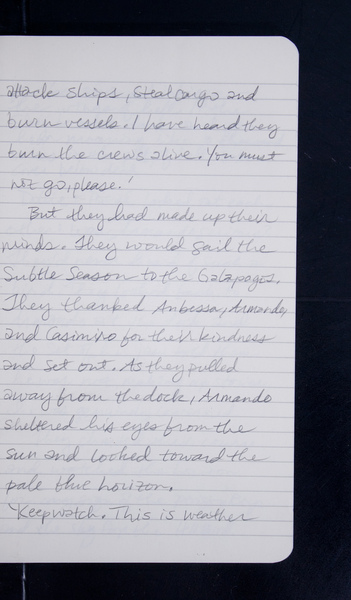 attack ships, steal cargo and
burn vessels. I have heard they
burn the crews alive. You must
not go, please.'
But they had made up their
minds. They would sail the
Subtle Season to the Galapagos.
They thanked Anbessa, Armando,
and Casimiro for their kindness
and set out. As they pulled
away from the dock, Armando
sheltered his eyes from the
sun and looked toward the
pale blue horizon.
'Keep watch. This is weather